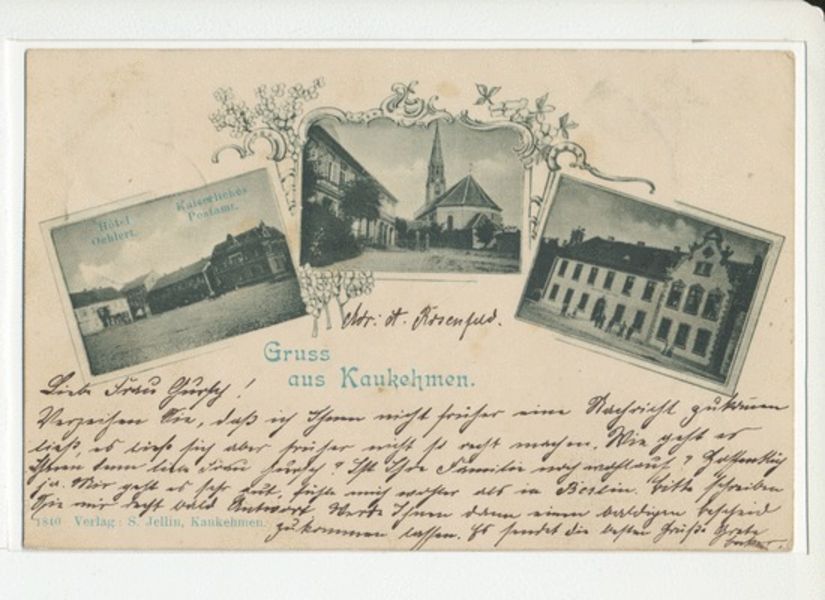 Hôtel
Oehlert.
Kaiserliches
Postamt.
Adr: A. Rosenfeld.
Gruss
aus Kaukehmen.
Liebe Frau Gursch!
Verzeihen Sie, daß ich Ihnen nicht früher eine Nachricht zukommen
ließ, es ließ sich aber früher nicht so recht machen. Wie geht es
Ihnen denn liebe Frau Gursch? Ist Ihre Familie noch wohlauf? Hoffentlich
ja. Mir geht es sehr gut, fühle mich wohler als in Berlin. Bitte schreiben
Sie mir recht bald Antwort. Werde Ihnen dann einen baldigen bescheid
zukommen lassen. Es sendet die besten Grüße Grete
1840 Verlag: S. Jellin, Kaukehmen.